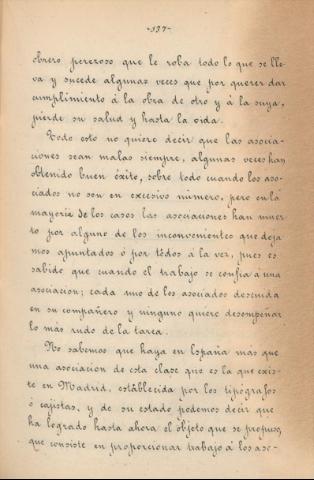 -137-
obrero perezoso que le roba todo lo que se lle-
va y sucede algunas veces que por querer dar
cumplimiento á la obra de otro y á la suya,
pierde su salud y hasta la vida.
Todo esto no quiere decir que las asocia-
ciones sean malas siempre, algunas veces han
obtenido buen éxito, sobre todo cuando los aso-
ciados no son en excesivo número, pero en la
mayoria de los casos las asociaciones han muer
to por alguno de los inconvenientes que deja
mos apuntados ó por tódos á la vez, pues es
sabido que cuando el trabajo se confia á una
asociacion; cada uno de los asociados descuida
en su compañero y ninguno quiere desempeñar
lo más rudo de la tarea.
No sabemos que haya en España mas que
una asociacion de esta clase que es la que exis-
te en Madrid, establecida por los tipógrafos
ó cajistas, y de su estado podemos decir que
ha logrado hasta ahora el objeto que se propuso,
que consiste en proporcionar trabajo á los aso-